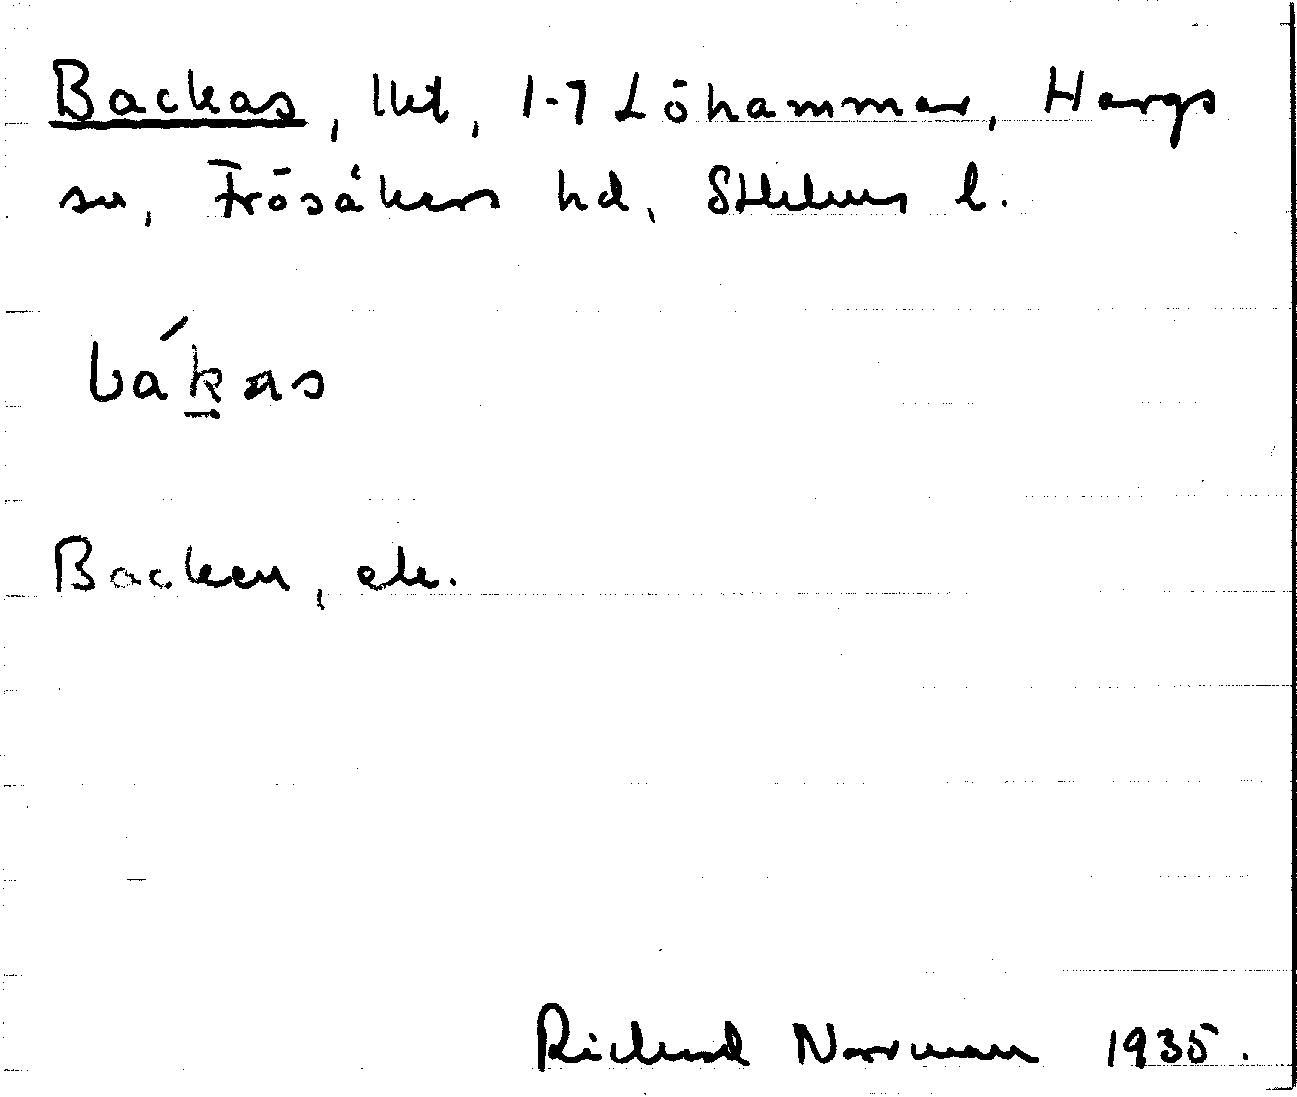 Backas, lht, 1-7 Löhammar, Hargs
sn, Frösåkers hd, Sthlms l.
bák̲as
Backen, ek.
Richard Norrman 1935.